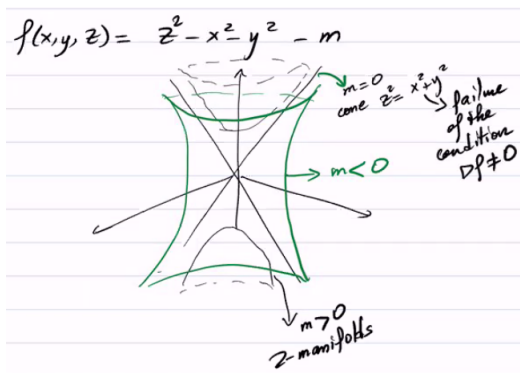 f(x,y,z) = z² - x² - y² - m
m=0
cone z² = x² + y²
failure
of the
condition
Df ≠ 0
m<0
m>0
2-manifolds